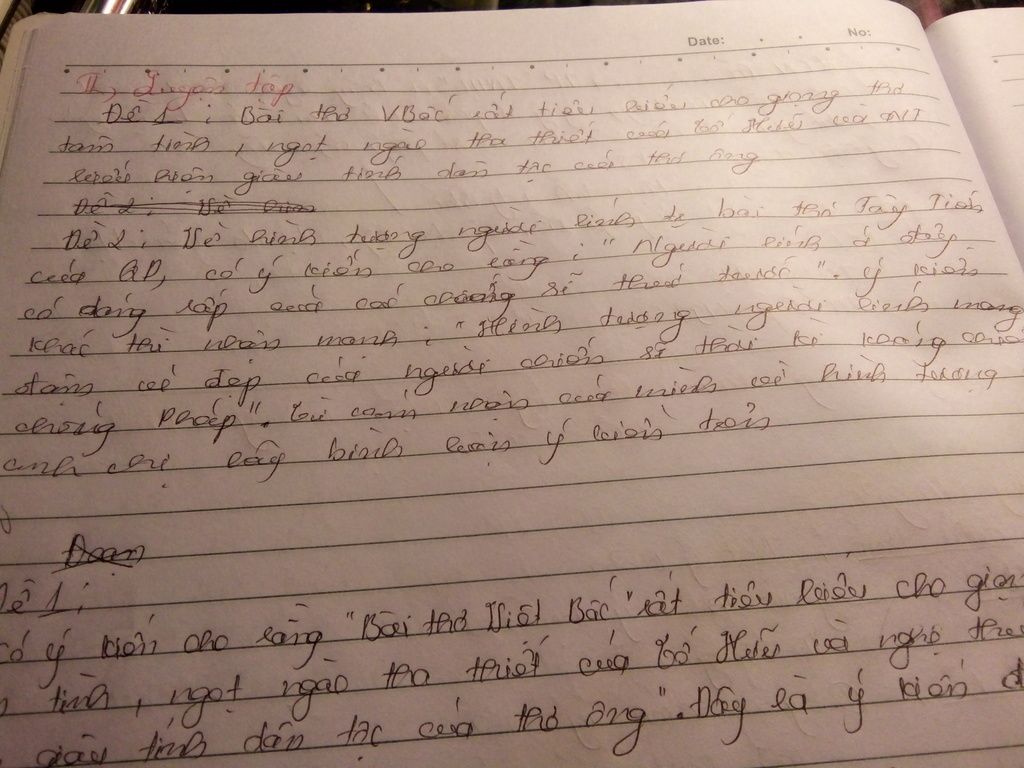 Date: No:
II, Luyện tập
Đề 1 : Bài thơ VBắc rất tiêu biểu cho giọng thơ
tâm tình, ngọt ngào tha thiết của Tố Hữu và NT
biểu hiện giàu tính dân tộc của thơ ông
Đề 2 : Về hình
Đề 2 : Về hình tượng người lính từ bài thơ Tây Tiến
của QD, có ý kiến cho rằng : "Người lính ở đây
có dáng dấp của các tráng sĩ thuở trước". Ý kiến
khác thì nhấn mạnh : "Hình tượng người lính mang
đậm vẻ đẹp của người chiến sĩ thời kì kháng chiến
chống Pháp". Từ cảm nhận của mình về hình tượng
anh chị hãy bình luận ý kiến trên
Đoạn
Đề 1 :
Có ý kiến cho rằng "Bài thơ Việt Bắc" rất tiêu biểu cho giọn
tình, ngọt ngào tha thiết của Tố Hữu và nghệ thu
giàu tính dân tộc của thơ ông". Đây là ý kiến đ